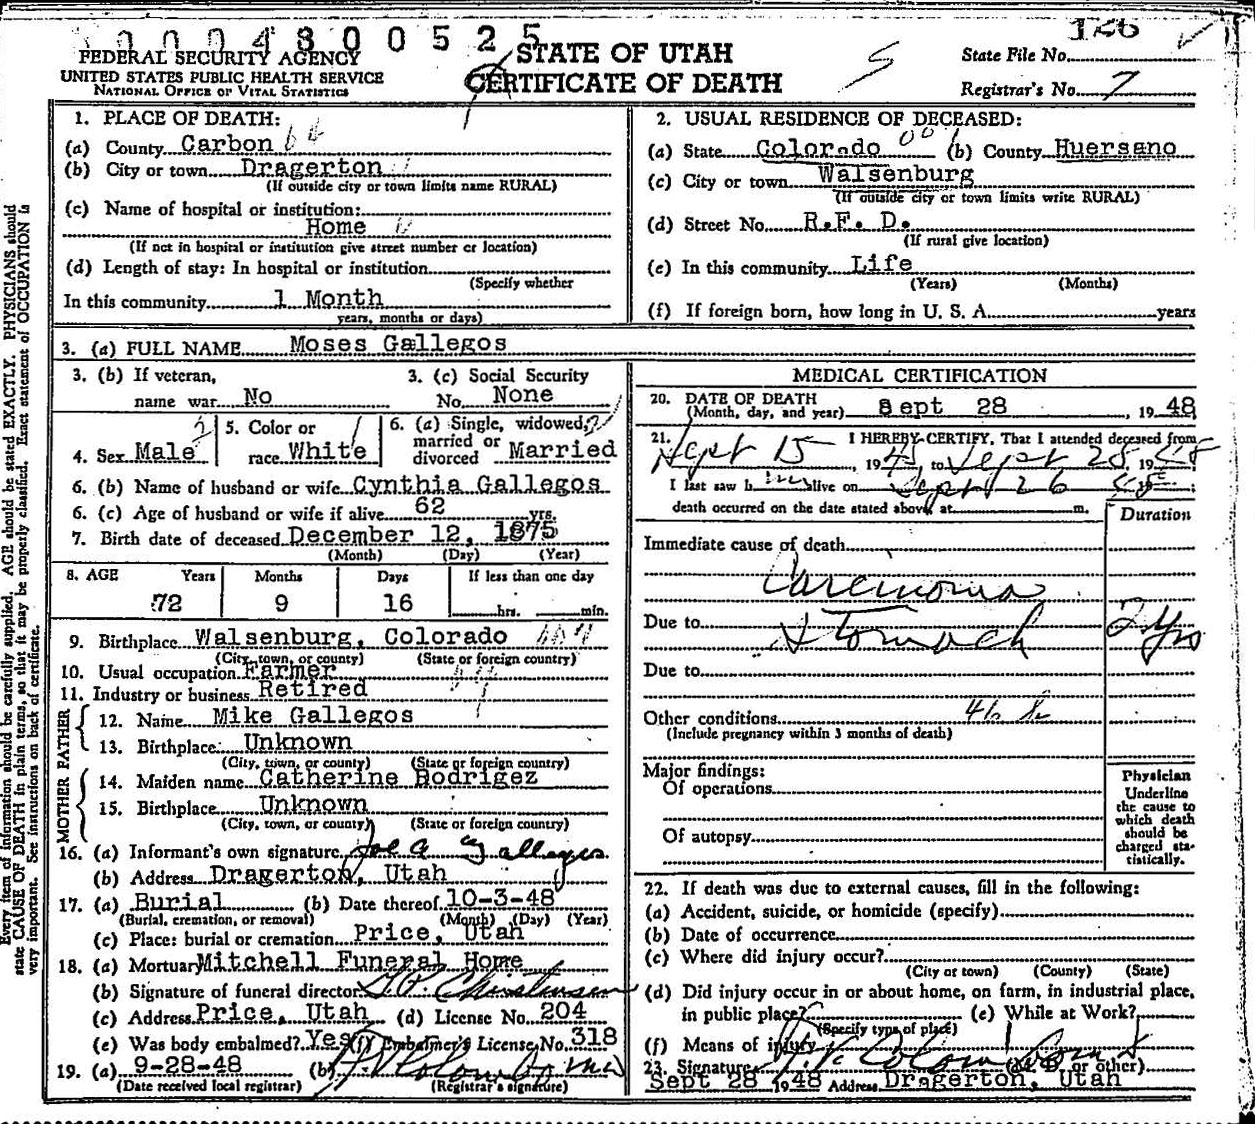 0004800525
126
FEDERAL SECURITY AGENCY
UNITED STATES PUBLIC HEALTH SERVICE
NATIONAL OFFICE OF VITAL STATISTICS
STATE OF UTAH
CERTIFICATE OF DEATH
State File No.
Registrar's No. 7
1. PLACE OF DEATH:
(a) County Carbon
(b) City or town Dragerton
(If outside city or town limits name RURAL)
(c) Name of hospital or institution:
Home
(If not in hospital or institution give street number or location)
(d) Length of stay: In hospital or institution
(Specify whether
In this community 1 Month
years, months or days)
2. USUAL RESIDENCE OF DECEASED:
(a) State Colorado (b) County Huersano
(c) City or town Walsenburg
(If outside city or town limits write RURAL)
(d) Street No. R.F. D.
(If rural give location)
(e) In this community Life
(Years) (Months)
(f) If foreign born, how long in U. S. A. years
3. (a) FULL NAME Moses Gallegos
3. (b) If veteran, 3. (c) Social Security
name war No No. None
4. Sex Male 5. Color or race White 6. (a) Single, widowed, married or divorced Married
6. (b) Name of husband or wife Cynthia Gallegos
6. (c) Age of husband or wife if alive 62 yrs.
7. Birth date of deceased December 12, 1875
(Month) (Day) (Year)
8. AGE Years Months Days If less than one day
72 9 16 hrs. min.
9. Birthplace Walsenburg, Colorado
(City, town, or county) (State or foreign country)
10. Usual occupation Farmer
11. Industry or business Retired
FATHER
12. Name Mike Gallegos
13. Birthplace Unknown
(City, town, or county) (State or foreign country)
MOTHER
14. Maiden name Catherine Rodrigez
15. Birthplace Unknown
(City, town, or county) (State or foreign country)
16. (a) Informant's own signature Joe A Gallegos
(b) Address Dragerton, Utah
17. (a) Burial (b) Date thereof 10-3-48
(Burial, cremation, or removal) (Month) (Day) (Year)
(c) Place: burial or cremation Price, Utah
18. (a) Mortuary Mitchell Funeral Home
(b) Signature of funeral director Christensen
(c) Address Price, Utah (d) License No. 204
(e) Was body embalmed? Yes (f) Embalmer's License No. 318
19. (a) 9-28-48 (b)
(Date received local registrar) (Registrar's signature)
MEDICAL CERTIFICATION
20. DATE OF DEATH
(Month, day, and year) Sept 28, 1948
21. I HEREBY CERTIFY, That I attended deceased from
Sept 15, 19 48, to Sept 28, 19 48
I last saw him alive on Sept 26 48;
death occurred on the date stated above, at m. Duration
Immediate cause of death
Carcinoma
Due to Stomach 2 yrs
Due to
Other conditions
(Include pregnancy within 3 months of death)
Major findings:
Of operations
Of autopsy
Physician
Underline
the cause to
which death
should be
charged sta-
tistically.
22. If death was due to external causes, fill in the following:
(a) Accident, suicide, or homicide (specify)
(b) Date of occurrence
(c) Where did injury occur?
(City or town) (County) (State)
(d) Did injury occur in or about home, on farm, in industrial place,
in public place? (e) While at Work?
(Specify type of place)
(f) Means of injury
23. Signature (M. D. or other)
Sept 28 1948 Address Dragerton, Utah
Every item of information should be carefully supplied. AGE should be stated EXACTLY. PHYSICIANS should
state CAUSE OF DEATH in plain terms, so that it may be properly classified. Exact statement of OCCUPATION is
very important. See instructions on back of certificate.